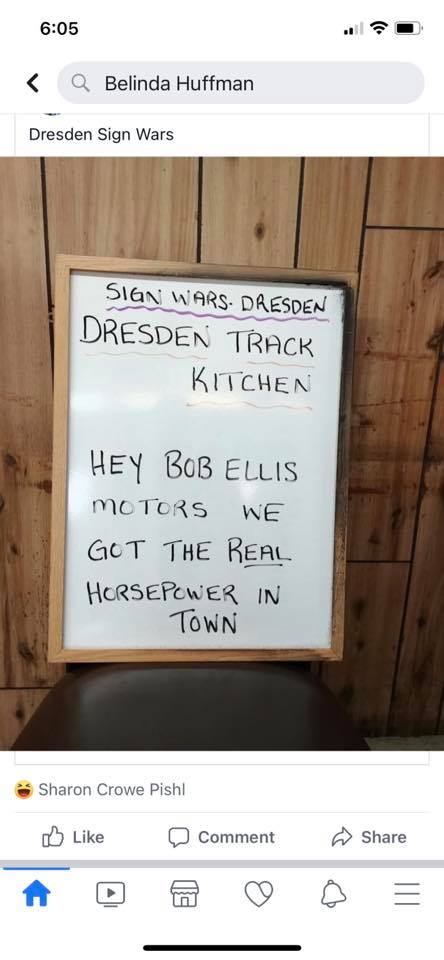 6:05
Belinda Huffman
Dresden Sign Wars
SIGN WARS. DRESDEN
DRESDEN TRACK
KITCHEN
HEY BOB ELLIS
MOTORS WE
GOT THE REAL
HORSEPOWER IN
TOWN
Sharon Crowe Pishl
Like
Comment
Share